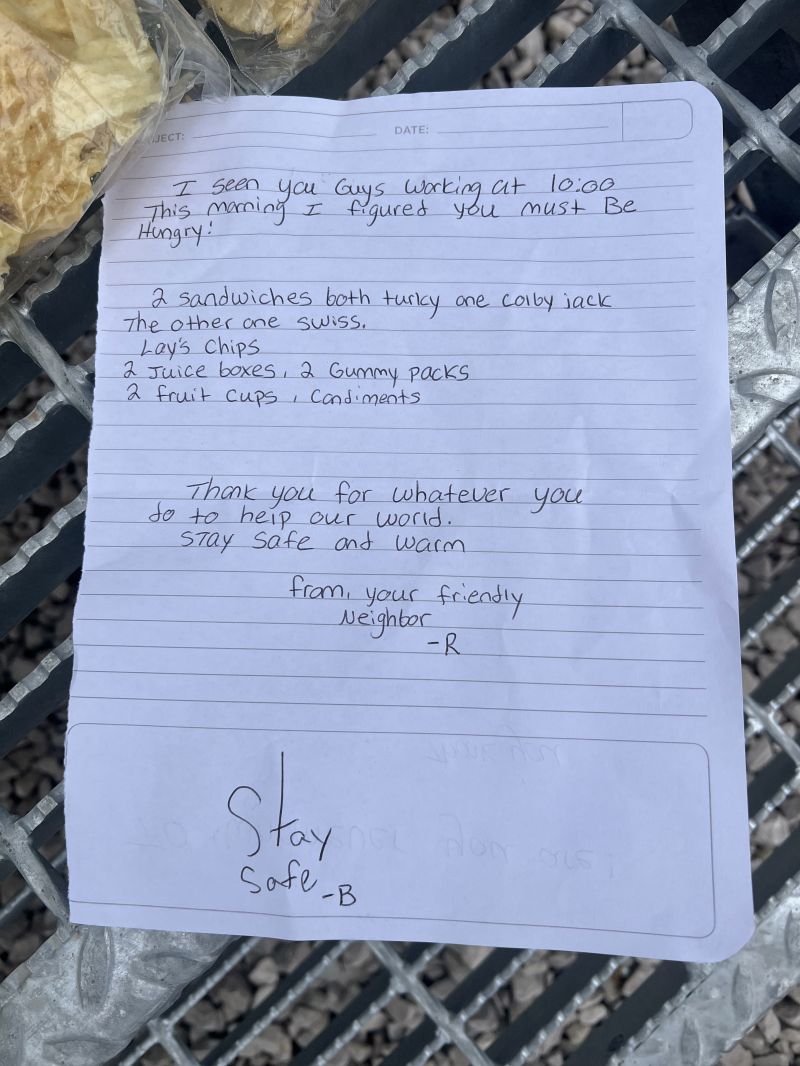 JECT:
DATE:
I seen you Guys working at 10:00
This morning I figured you must Be
Hungry!
2 sandwiches both turky one colby jack
The other one swiss.
Lay's Chips
2 Juice boxes, 2 Gummy packs
2 fruit cups, Condiments
Thank you for whatever you
do to help our world.
STAY Safe and warm
from, your friendly
Neighbor
-R
Stay
Safe -B